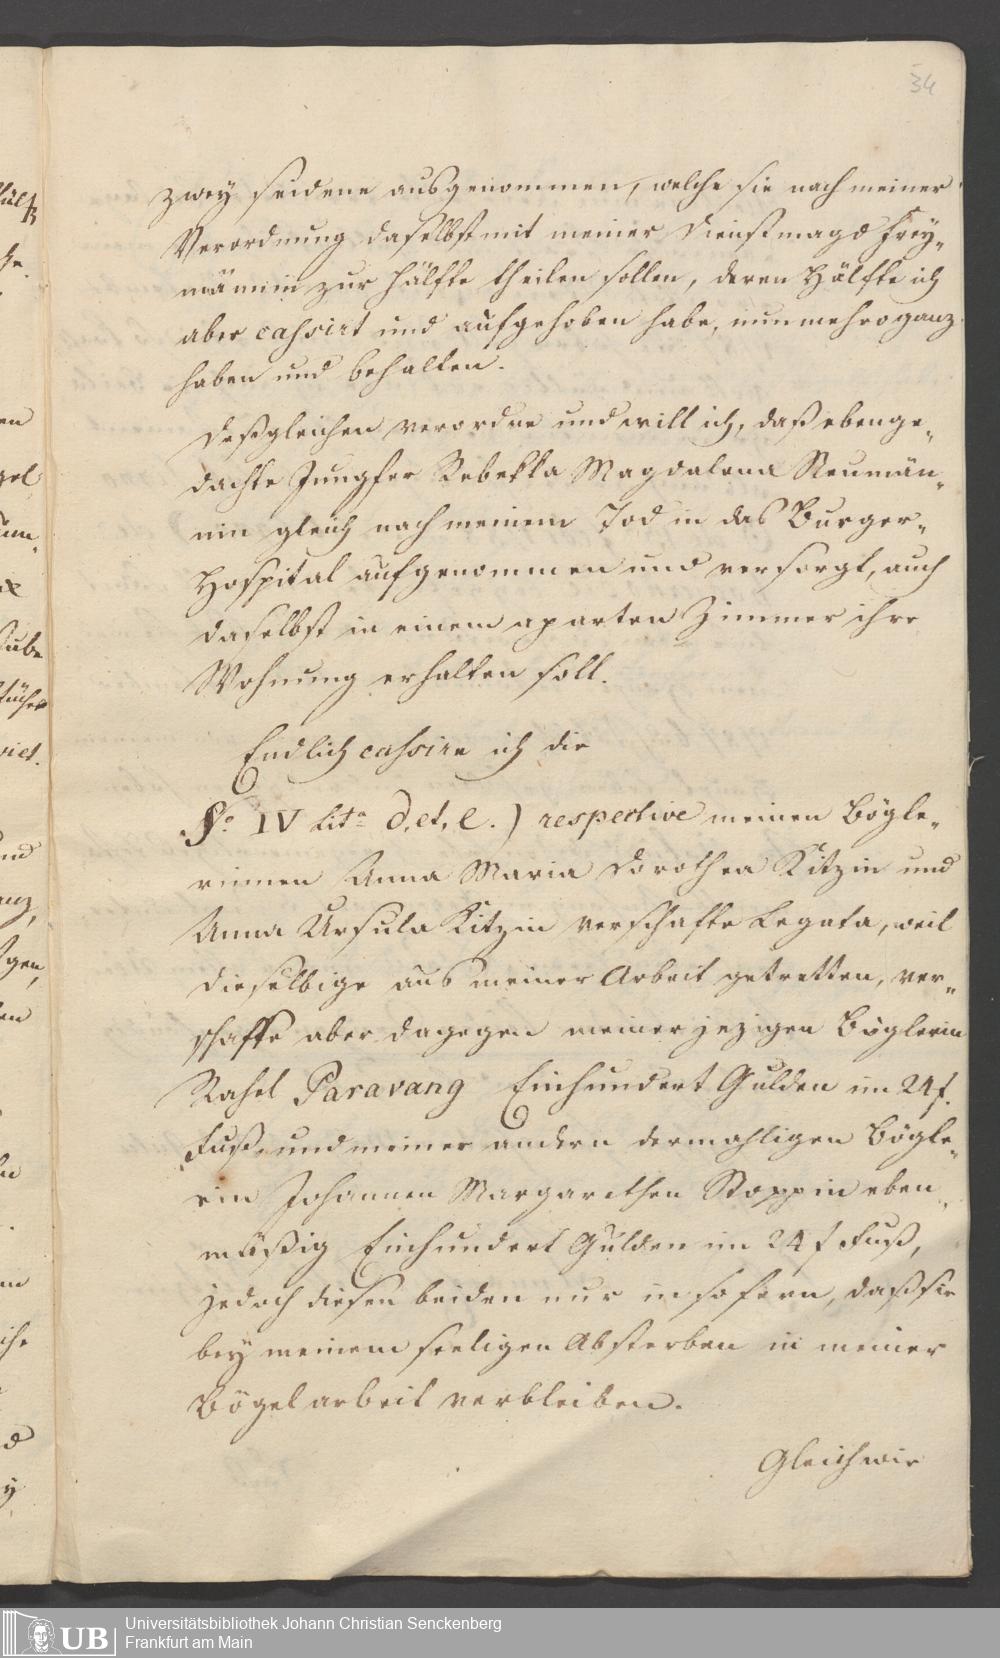 34
zwey seidene ausgenommen, welche sie nach meiner
Verordnung daselbst mit meiner Dienstmagd Frey„
männin zur Hälfte theilen sollen, deren Hälfte ich
aber cassirt und aufgehoben habe, nunmehro ganz
haben und behalten.
Deßgleichen verordne und will ich, daß ebenge„
dachte Jungfer Rebekka Magdalena Neumän„
nin gleich nach meinem Tod in das Burger„
Hospital aufgenommen und versorgt, auch
daselbst in einem aparten Zimmer ihre
Wohnung erhalten soll.
Endlich cassire ich die
§o. IV lita d, et, e.) respective meinen Bögle„
rinnen Anna Maria Dorothea Kitzin und
Anna Ursula Kitzin verschafte Legata, weil
dieselbige aus meiner Arbeit getretten, ver„
schaffe aber dagegen meiner jezigen Böglerin
Rahel Paravang Einhundert Gulden im 24f.
Fuß, und meiner andern dermahligen Bögle„
rin Johannen Margarethen Stoppin eben„
mäßig Einhundert Gulden im 24 f Fuß,
jedoch diesen beiden nur in sofern, daß sie
bey meinem seeligen Absterben in meiner
Bögelarbeit verbleiben.
Gleichwie
UB
Universitätsbibliothek Johann Christian Senckenberg
Frankfurt am Main